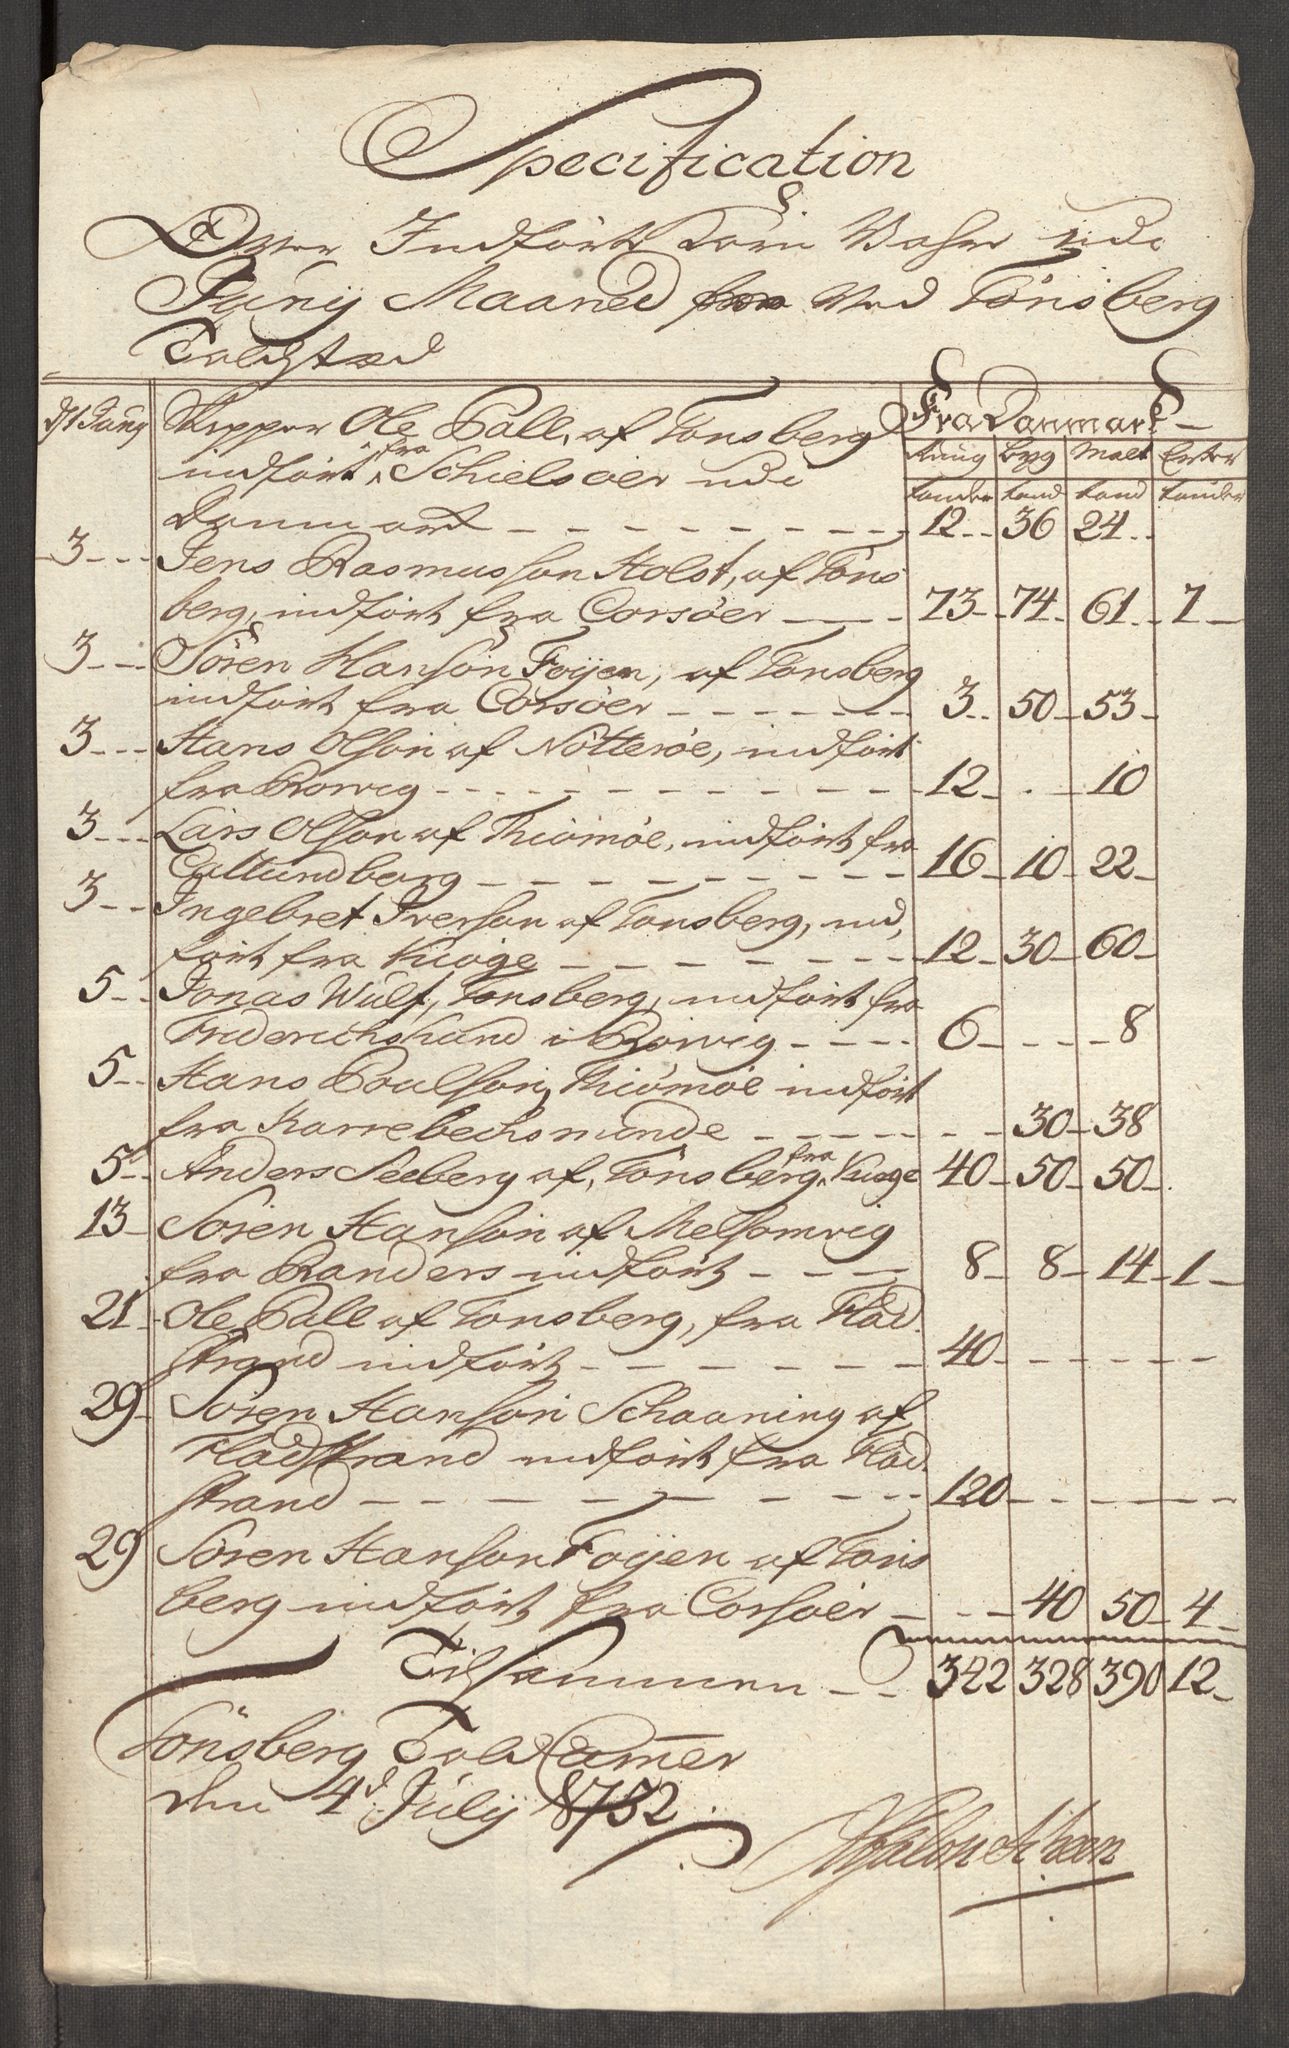 Specification
Over Indført Korn Vahre udi
Junij Maaned fra Ved Tønsberg
Toldstæd
Fra Danmark
Rung Byg Malt Erter
tønder tønd tønd tønder
d 1 Junij Skipper Ole Pall, af Tønsberg
indført fra Schielsøer udi
Danmark 12 36 24
3 Jens Rasmusson Holst, af Tøns
berg, indført fra Corsøer 73 74 61 7
3 Søren Hanson Foyen, af Tønsberg
indført fra Corsøer 3 50 53
3 Hans Olson af Nötterøe, indført
fra Roewig 12 10
3 Lars Olson af Thiømøe, indført fra
Callundborg 16 10 22
3 Ingebret Iverson af Tønsberg, ind,
ført fra Kiøge 12 30 60
5 Jonas Wulf, Tønsberg, indført fra
Friderichsund i Roewig 6 8
5 Hans Poulson, Thiømøe indført
fra Karrebechsmunde 30 38
5 Anders Seeberg af, Tønsberg, fra Kiøge 40 50 50
13 Søren Hanson af Melsomvig
fra Randers indført 8 8 14 1
21 Ole Pall af Tønsberg, fra Flad
strand indført 40
29 Søren Hanson Schaaning af
Fladstrand indført fra Flad
strand 120
29 Søren Hanson Foyen af Tøns
berg indført fra Corsøer 40 50 4
Tilsammen 342 328 390 12
Tönsberg Told Camer
den 4d July 1732